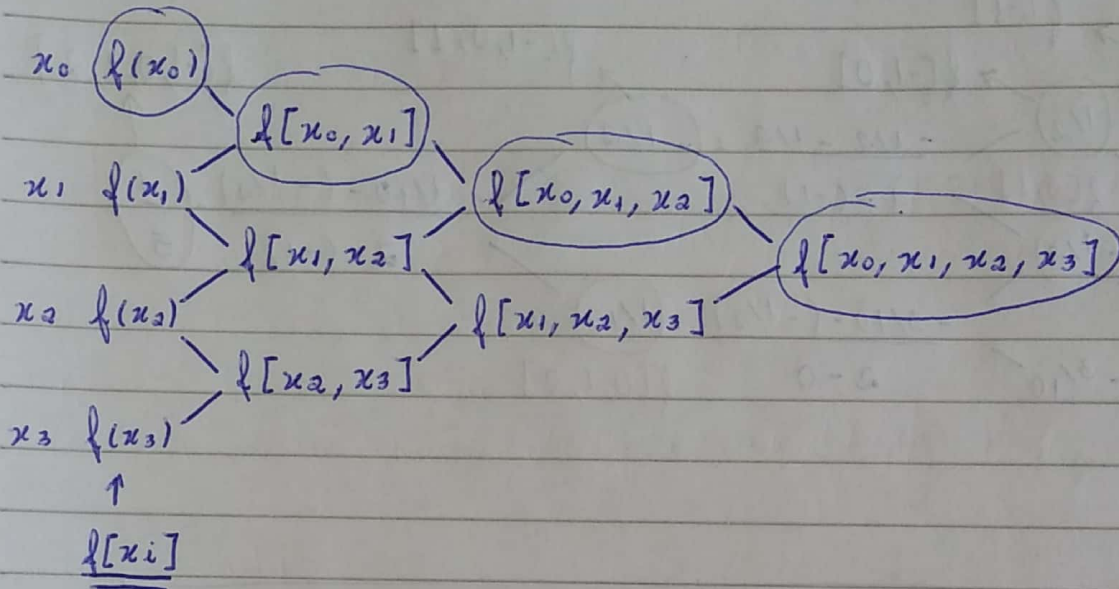 x₀ f(x₀)
f[x₀, x₁]
x₁ f(x₁)
f[x₀, x₁, x₂]
f[x₁, x₂]
f[x₀, x₁, x₂, x₃]
x₂ f(x₂)
f[x₁, x₂, x₃]
f[x₂, x₃]
x₃ f(x₃)
↑
f[xi]